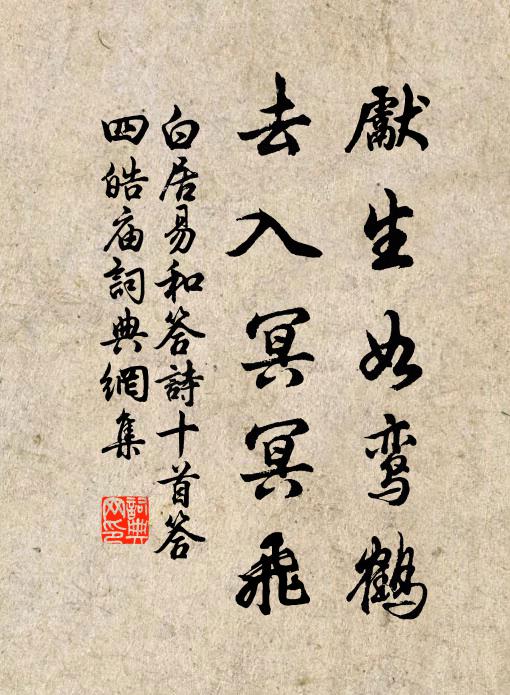 獻生如鸾鶴
去入冥冥飛
白居易和答詩十首答
四皓庙詞典網集
詞典
网印